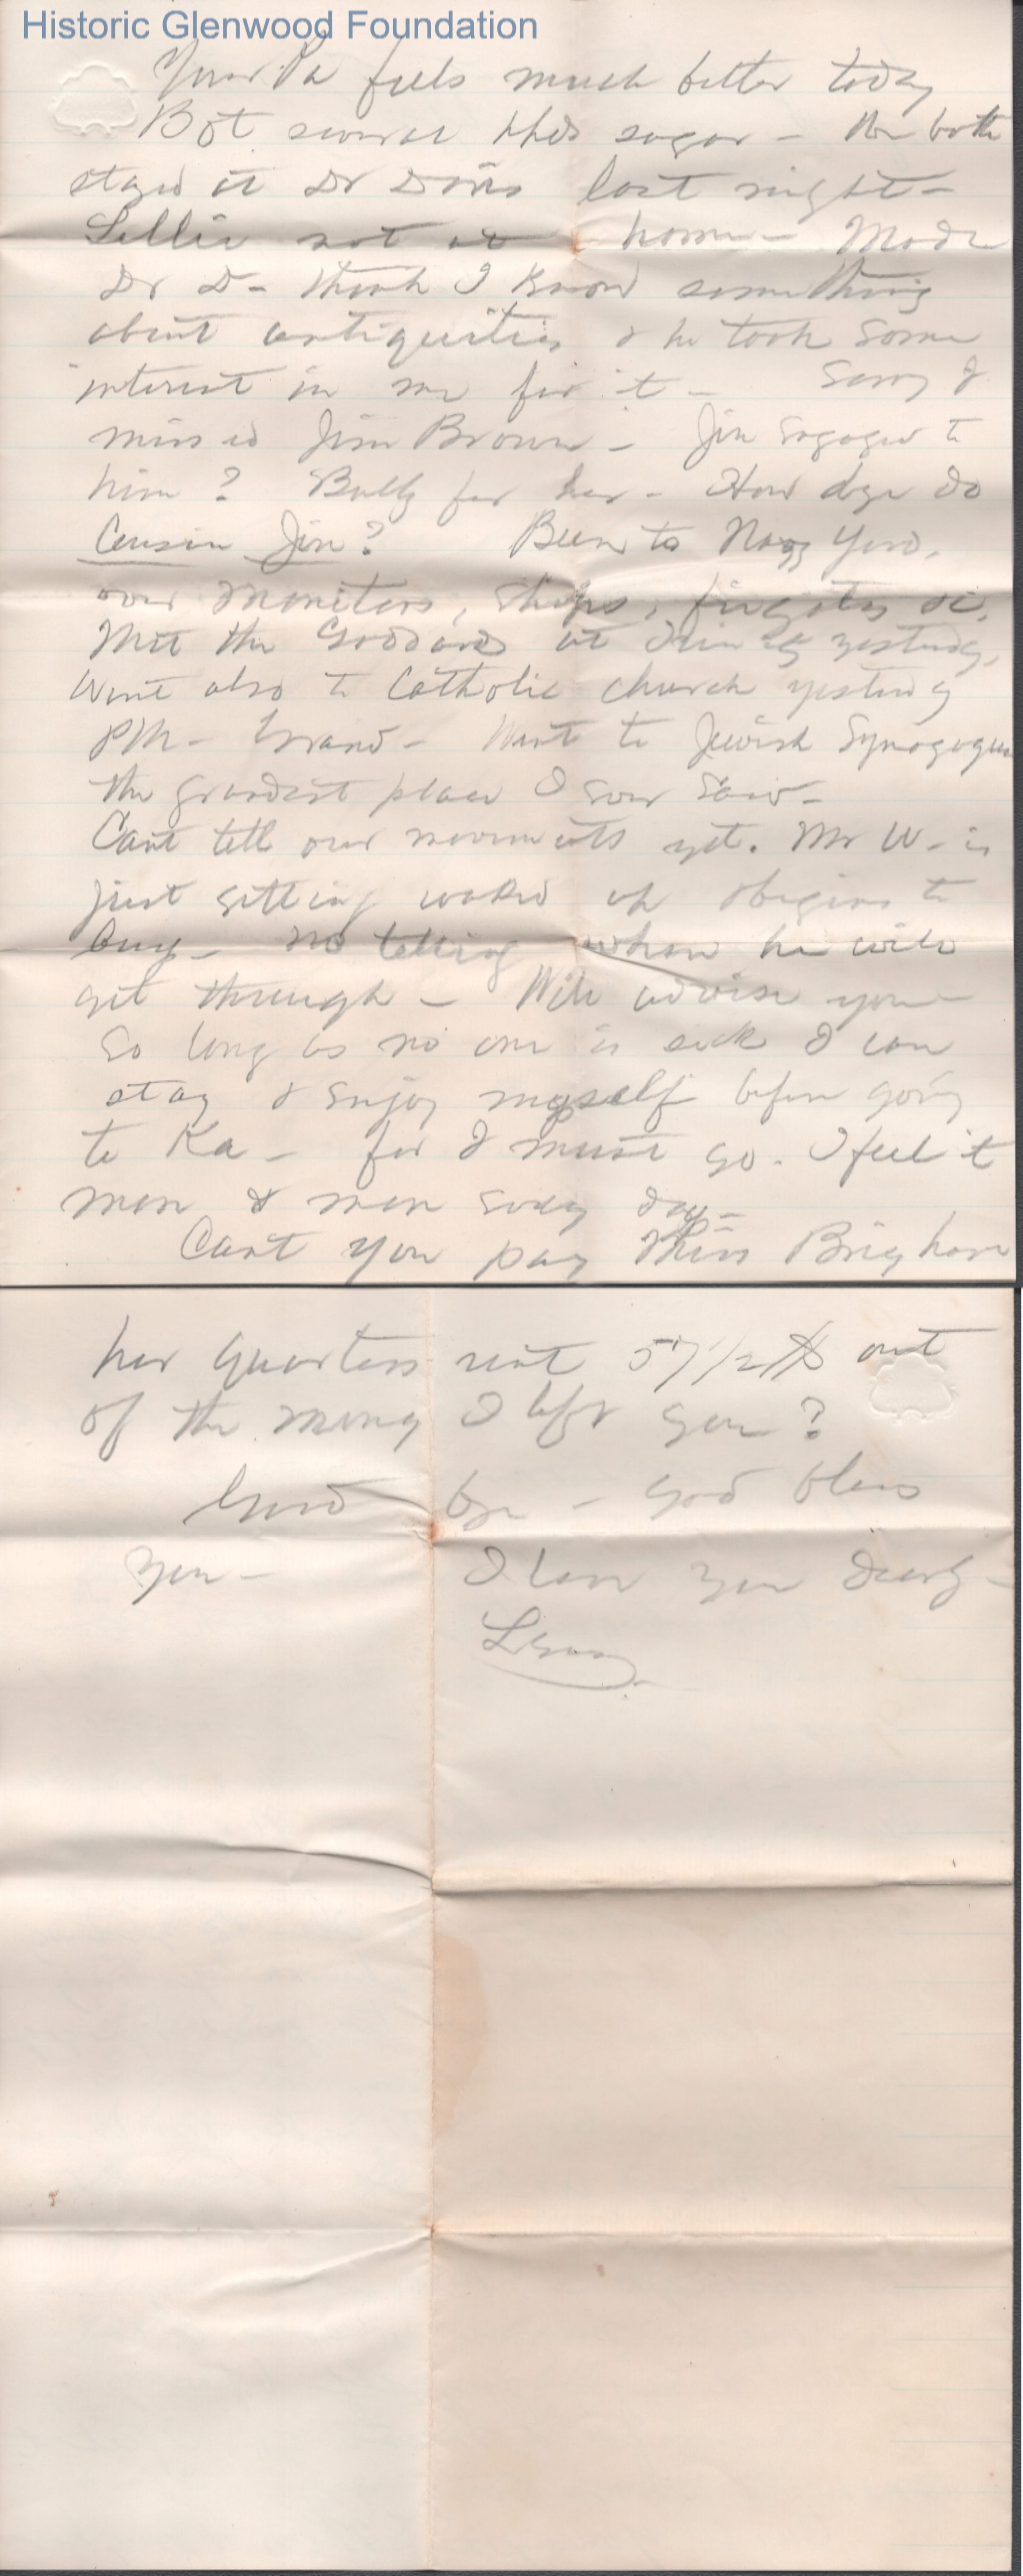 Historic Glenwood Foundation
Your Pa feels much better today
Bot several hhds sugar – We both
stayed at Dr Davis last night –
Lillie not at home – Made
Dr D– think I know something
about antiquities & he took some
interest in me for it – Sorry I
missed Jim Brown – Jin engaged to
him? Bully for her – How dye do
Cousin Jin? Been to Navy Yard,
over Monitors, ships, frigates &c,
Met the Goddards at yesterday,
Went also to Catholic church yesterday
PM – Grand – Went to Jewish Synagogue
the grandest place I ever saw –
Cant tell our movements yet. Mr W– is
just getting waked up & begins to
buy – no telling when he will
get through – Will advise you –
So long as no one is sick I can
stay & enjoy myself before going
to Ka – for I must go. I feel it
more & more every day –
Cant you pay Miss Brigham
her quarters rent 57 1/2 $ out
of the money I left you?
Good bye – God bless
you – I love you dearly –